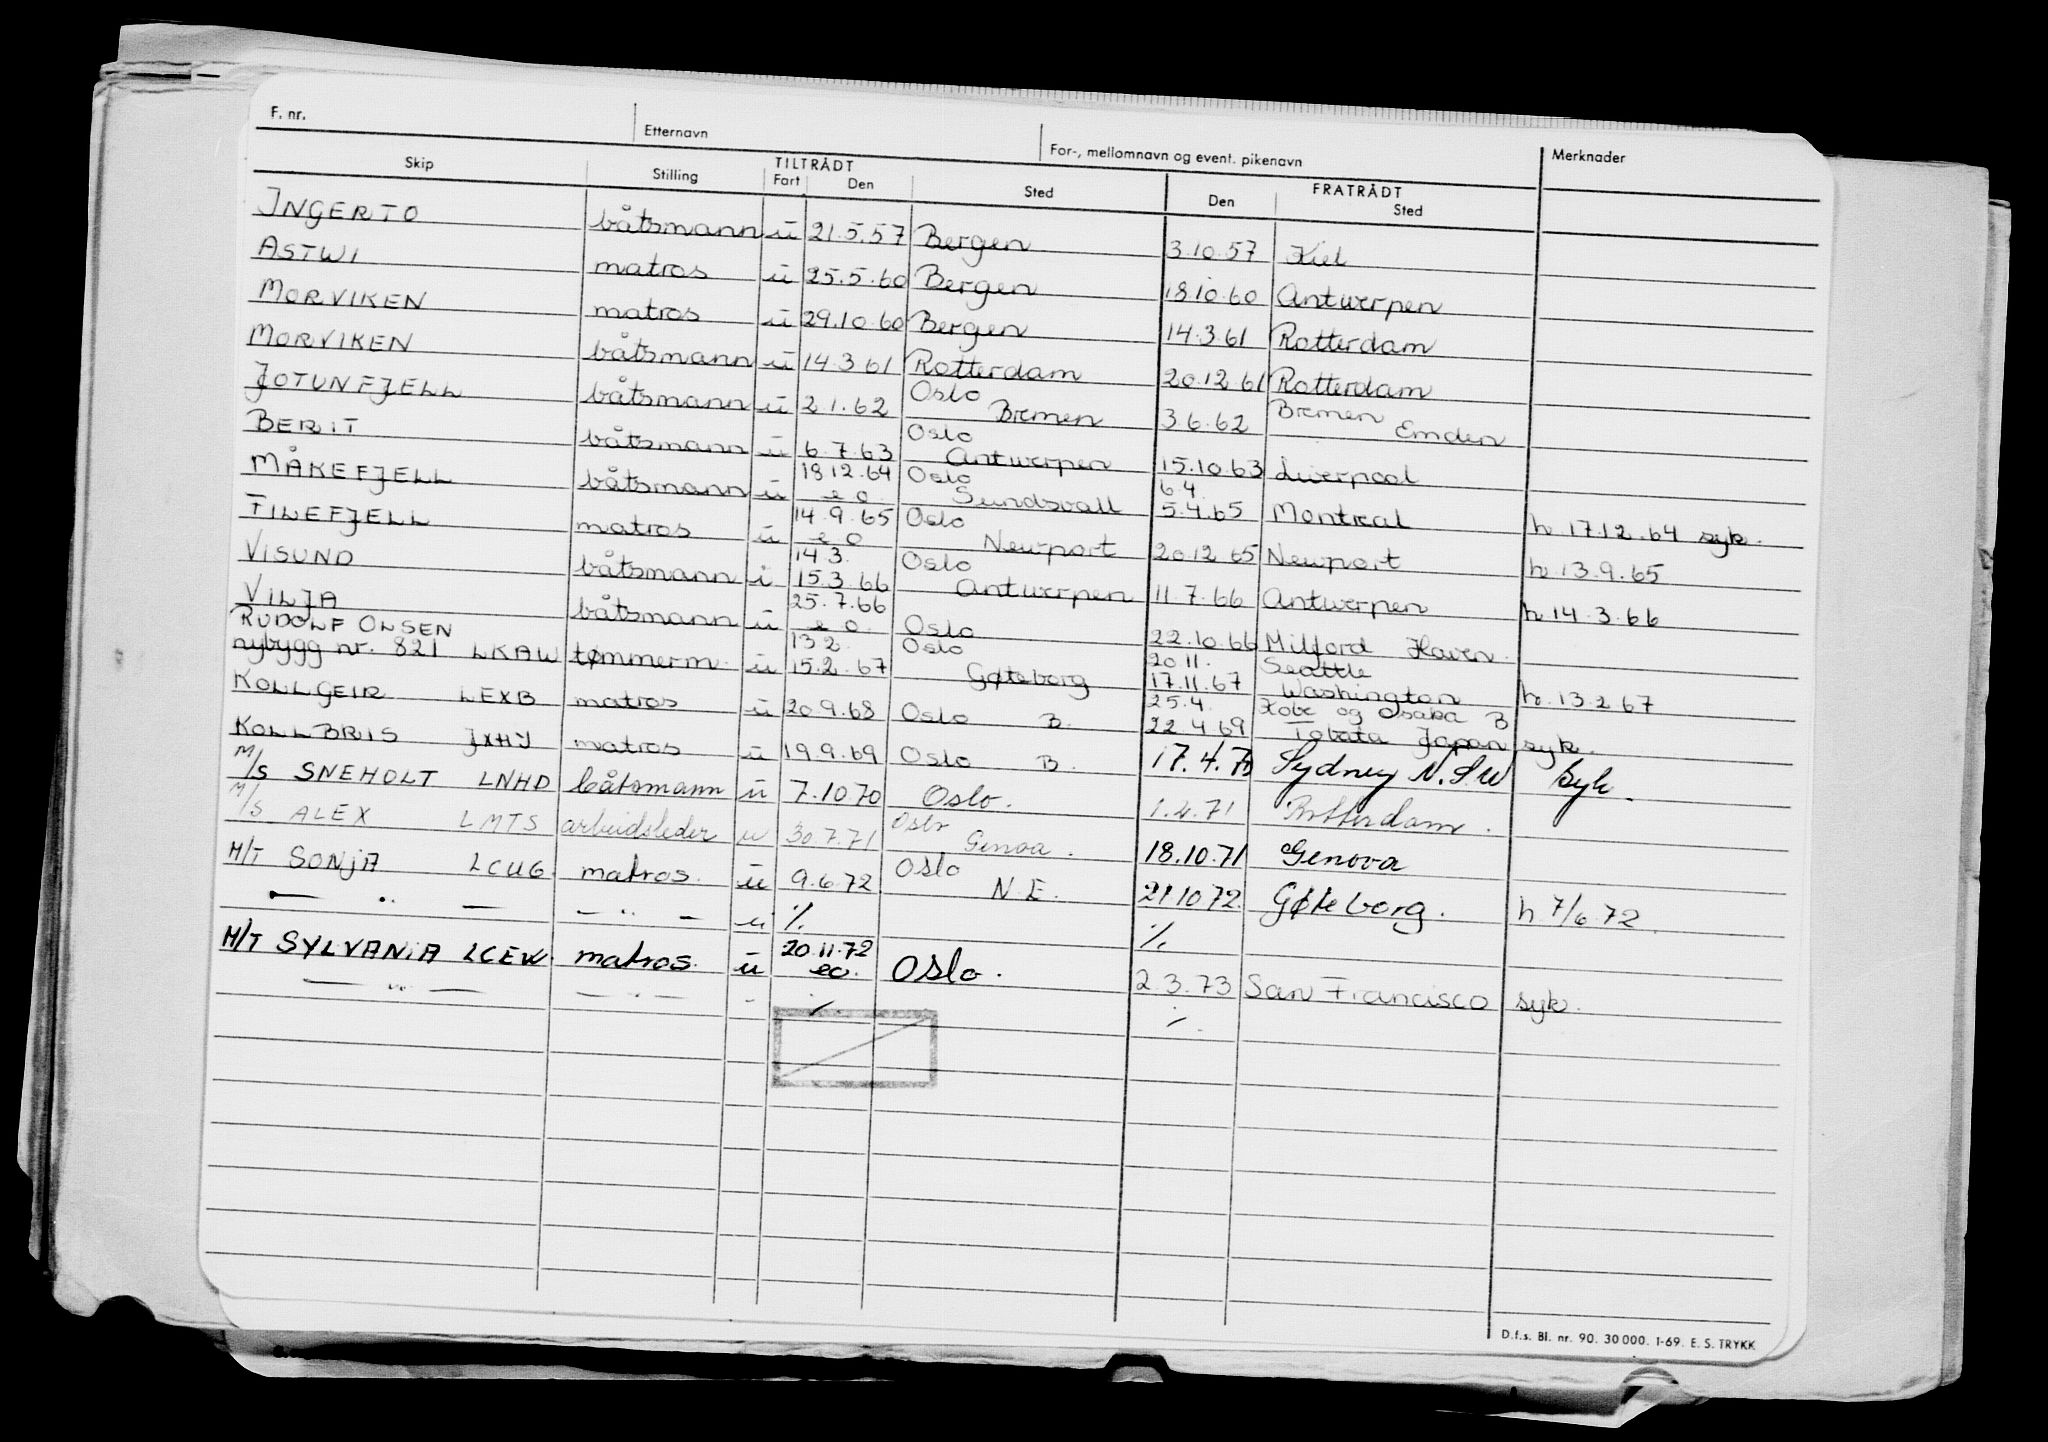 F. nr. Etternavn For-, mellomnavn og event. pikenavn Merknader
Skip Stilling TILTRÅDT Fart Den Sted FRATRÅDT Den Sted
INGERTO båtsmann u 21.5.57 Bergen 3.10.57 Kiel
ASTWI matros u 25.5.60 Bergen 18.10.60 Antwerpen
MORVIKEN matros u 29.10.60 Bergen 14.3.61 Rotterdam
MORVIKEN båtsmann u 14.3.61 Rotterdam 20.12.61 Rotterdam
JOTUNFJELL båtsmann u 2.1.62 Oslo Bremen 3.6.62 Bremen Emden
BERIT båtsmann u 6.7.63 Oslo Antwerpen 15.10.63 Liverpool
MÅKEFJELL båtsmann u 18.12.64 e o. Oslo Sundsvall 6.4. 5.4.65 Montreal h 17.12.64 syk.
FILEFJELL matros u 14.9.65 e o Oslo Newport 20.12.65 Newport h 13.9.65
VISUND båtsmann u 14.3. 15.3.66 Oslo Antwerpen 11.7.66 Antwerpen h 14.3.66
VILJA båtsmann u 25.7.66 e o. Oslo 22.10.66 Milford Haven
RUDOLF OLSEN
nybygg nr. 821 LKAW tømmerm. u 13.2. 15.2.67 Oslo Gøteborg 20.11. 17.11.67 Seattle Washington h. 13.2.67
KOLLGEIR LEXB matros u 20.9.68 Oslo B. 25.4. 22.4.69 Kobe og Osaka B Tobata Japan syk.
KOLLBRIS JXHJ matros u 19.9.69 Oslo B. 17.4.70 Sydney N.S.W syk.
M/S SNEHOLT LNHD båtsmann u 7.10.70 Oslo. 1.4.71 Rotterdam.
M/S ALEX LMTS arbeidsleder u 30.7.71 Oslo Genoa. 18.10.71 Genova
M/T SONJA LCUG matros. u 9.6.72 Oslo N.E. 21.10.72. Gøteborg. h 7/6.72.
— " — — " — u ·/. ·/.
M/T SYLVANIA LCEW. matros. u 20.11.72 eo. Oslo. 2.3.73 San Francisco syk.
— " — — " — - ·/. ·/.
D.f.s. Bl. nr. 90. 30 000. 1-69. E. S. TRYKK